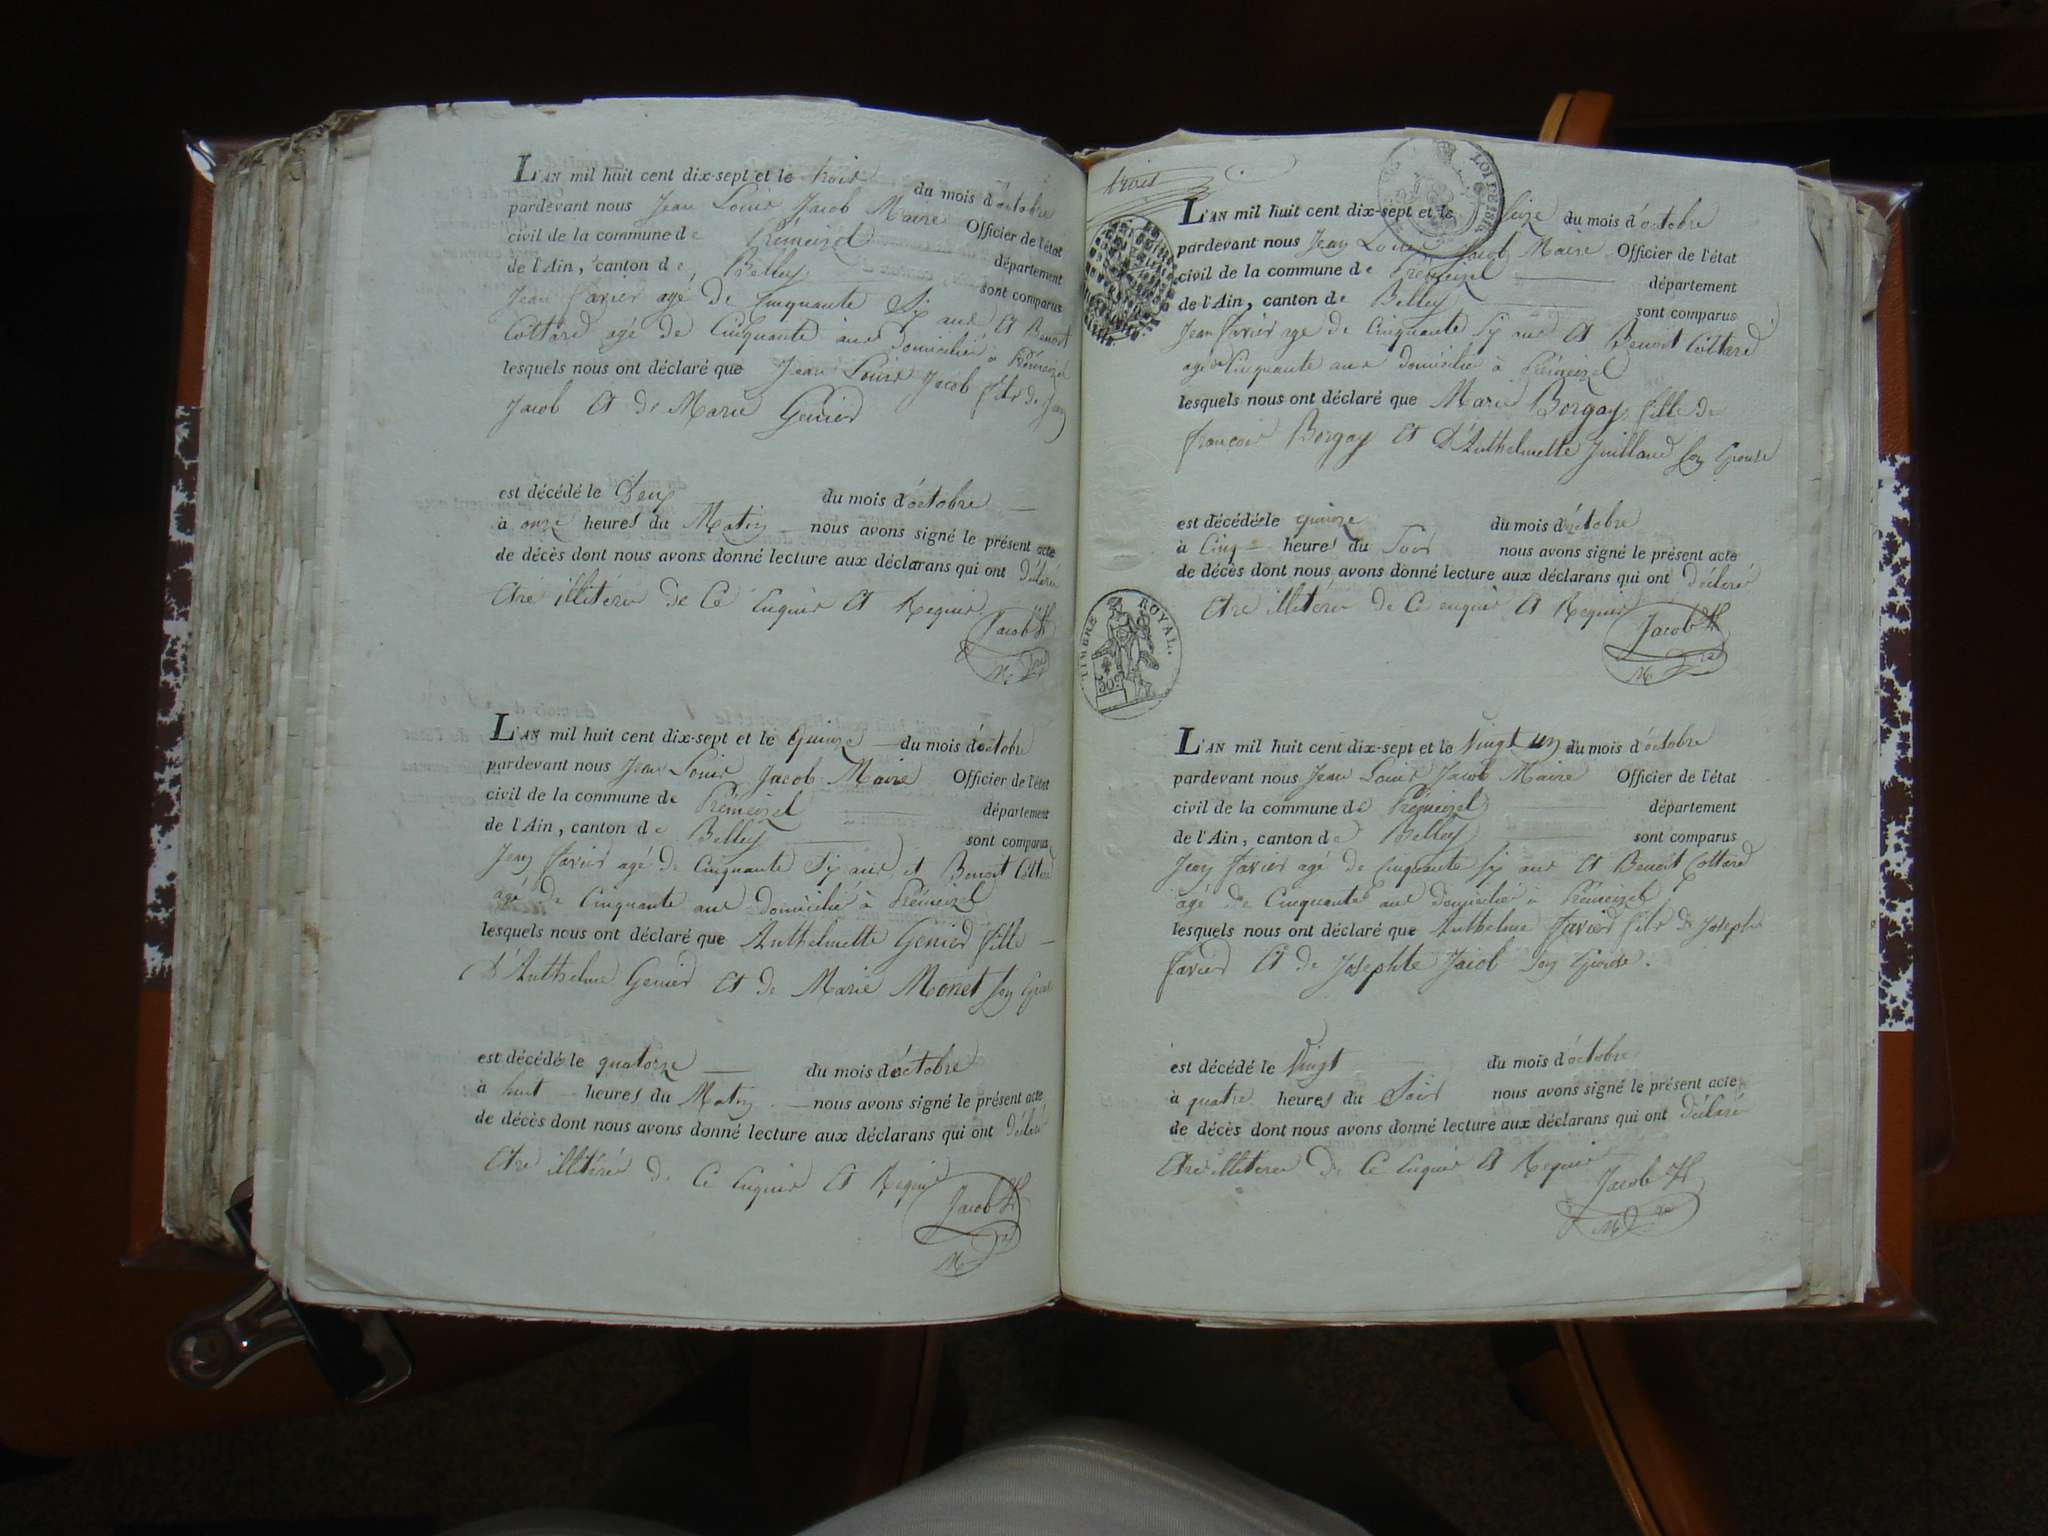 L'AN mil huit cent dix-sept et le trois du mois d'octobre
pardevant nous Jean Louis Jacob Maire Officier de l'état
civil de la commune de Prémeizel département
de l'Ain, canton de Belley sont comparus
Jean Favier agé de Cinquante Six ans et Benoit
Cottard agé de Cinquante ans domicilié à Prémeizel
lesquels nous ont déclaré que Jean Louis Jacob fils de Jean
Jacob et de Marie Genier
est décédé le Deux du mois d'octobre
à onze heures du Matin nous avons signé le présent acte
de décès dont nous avons donné lecture aux déclarans qui ont déclaré
Etre illitéré de Ce Enquis et Requis
Jacob
M
L'AN mil huit cent dix-sept et le quinze du mois d'octobre
pardevant nous Jean Louis Jacob Maire Officier de l'état
civil de la commune de Prémeizel département
de l'Ain, canton de Belley sont comparus
Jean Favier agé de Cinquante Six ans et Benoit Cottard
agé de Cinquante ans domicilié à Prémeizel
lesquels nous ont déclaré que Anthelmette Genier fille
D'Anthelme Genier et de Marie Monet son
est décédé le quatorze du mois d'octobre
à huit heures du Matin nous avons signé le présent acte
de décès dont nous avons donné lecture aux déclarans qui ont déclaré
Etre illitéré de Ce Enquis et Requis
Jacob
M
trois
LOI DE 1816
L'AN mil huit cent dix-sept et le Seize du mois d'octobre
pardevant nous Jean Louis Jacob Maire Officier de l'état
civil de la commune de Prémeizel département
de l'Ain, canton de Belley sont comparus
Jean Favier agé de Cinquante Six ans et Benoit Cottard
agé de Cinquante ans domicilié à Prémeizel
lesquels nous ont déclaré que Marie Borgay fille de
françois Borgay et D'Anthelmette Juilland son Epouse
est décédée le quinze du mois d'octobre
à Cinq heures du Soir nous avons signé le présent acte
de décès dont nous avons donné lecture aux déclarans qui ont déclaré
Etre illitéré de Ce enquis et Requis
TIMBRE ROYAL.
50c
Jacob
M
L'AN mil huit cent dix-sept et le Vingt un du mois d'octobre
pardevant nous Jean Louis Jacob Maire Officier de l'état
civil de la commune de Prémeizel département
de l'Ain, canton de Belley sont comparus
Jean Favier agé de Cinquante Six ans et Benoit Cottard
agé de Cinquante ans domicilié à Prémeizel
lesquels nous ont déclaré que Anthelme Favier fils de Joseph
Favier et de Josephte Jacob son Epouse.
est décédé le Vingt du mois d'octobre
à quatre heures du Soir nous avons signé le présent acte
de décès dont nous avons donné lecture aux déclarans qui ont déclaré
Etre illiteré de Ce Enquis et Requis
Jacob
M